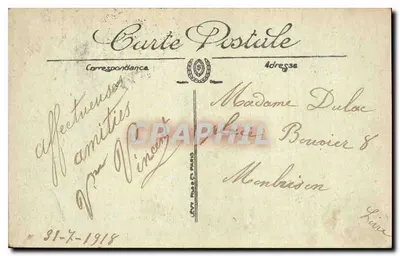 Carte Postale
Correspondance
Adresse
Affectueuses
amitiés
Vve Vincent
31-7-1918
Madame Dulac
Bouvier 8
Montbrison
Loire
CPAPHIL